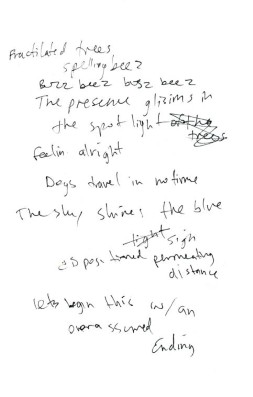 Fractilated trees
spelling beez
Buzz beez buzz beez
The presence glisims in
the spot light of the
trees
feelin alright
Days travel in no time
The sky shines the blue
light sign
permeating
distance
lets begin this w/ an
over assumed
Ending